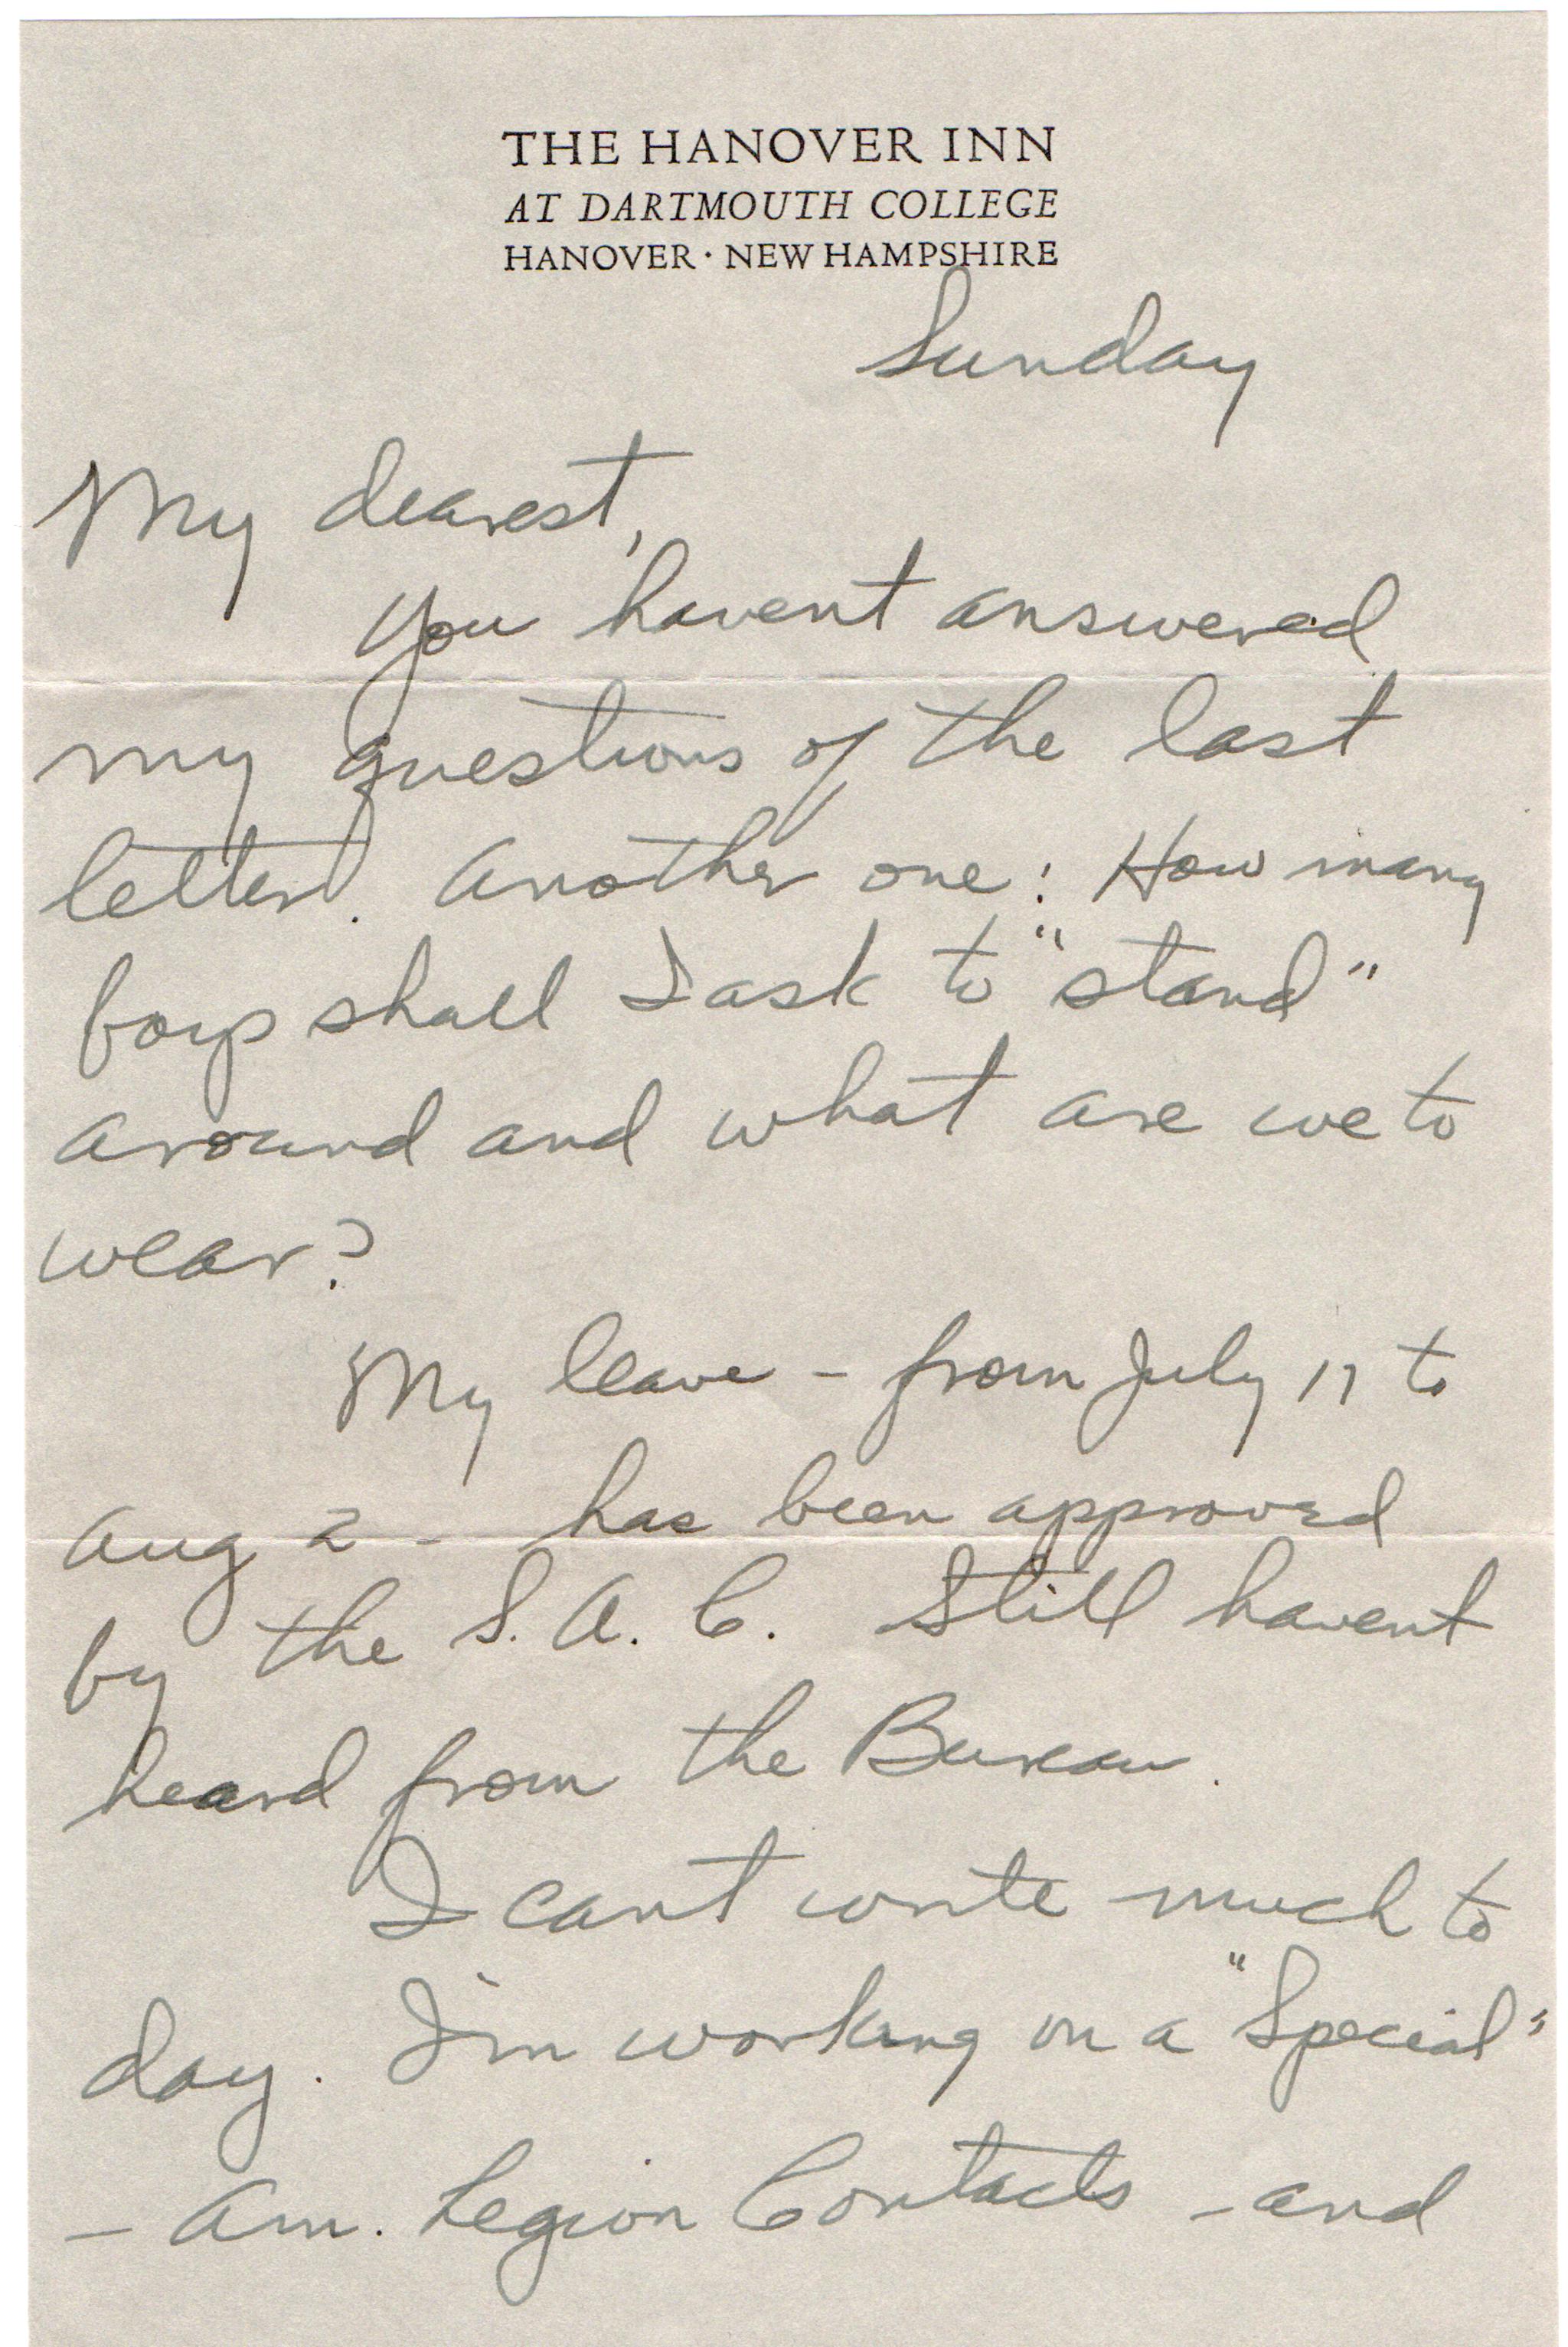 THE HANOVER INN
AT DARTMOUTH COLLEGE
HANOVER · NEW HAMPSHIRE
Sunday
My dearest,
You havent answered
my questions of the last
letter. Another one: How many
boys shall I ask to "stand"
around and what are we to
wear?
My leave - from July 17 to
Aug 2 - has been approved
by the S. A. C. Still havent
heard from the Bureau.
I cant write much to
day. I'm working on a "Special"
- Am. Legion Contacts - and